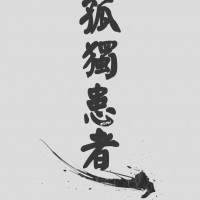 孤獨患者